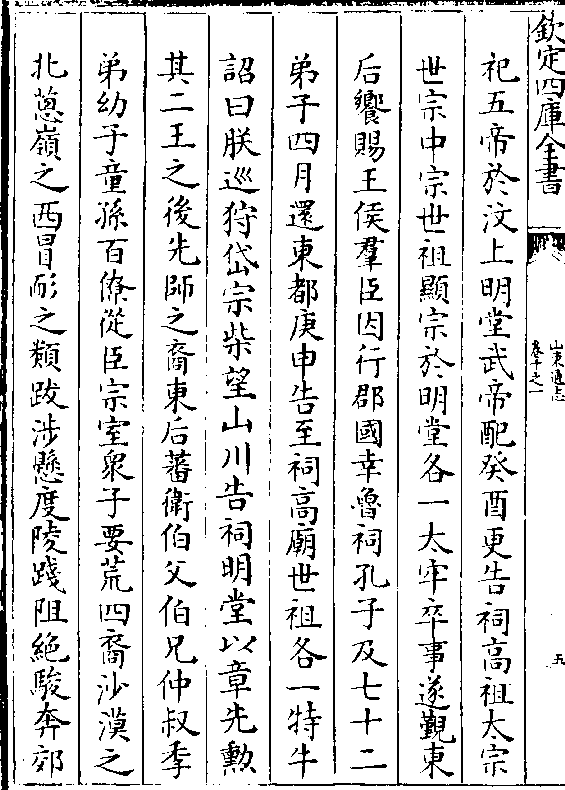 欽定四庫全書
山東通志
卷十之一
五
祀五帝於汶上明堂武帝配癸酉更告祠高祖太宗
世宗中宗世祖顯宗於明堂各一太牢卒事遂覲東
后饗賜王侯羣臣因行郡國幸魯祠孔子及七十二
弟子四月還東都庚申告至祠高廟世祖各一特牛
詔曰朕巡狩岱宗柴望山川告祠明堂以章先勲
其二王之後先師之裔東后蕃衛伯父伯兄仲叔季
弟幼子童孫百僚從臣宗室衆子要荒四裔沙漠之
北蔥嶺之西冒耏之類跋涉懸度陵踐阻絶駿奔郊